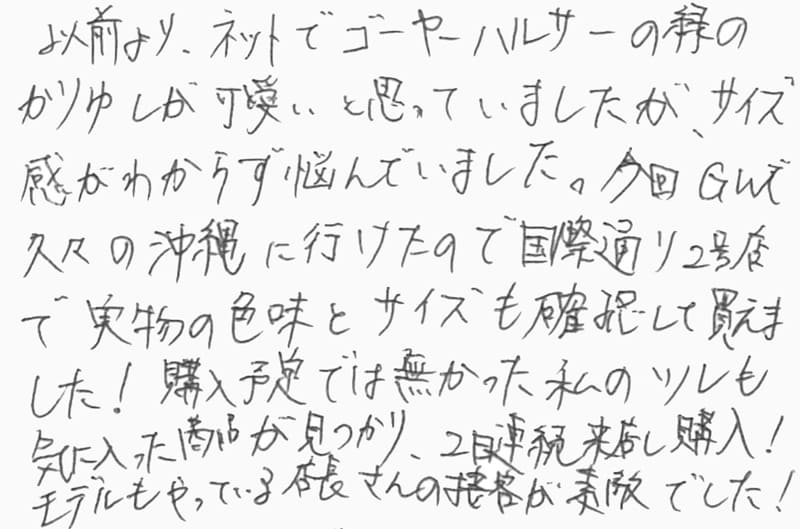 以前より、ネットでゴーヤーハルサーの緑の
かりゆしが可愛いと思っていましたが、サイズ
感がわからず悩んでいました。今回GWで
久々の沖縄に行けたので国際通り2号店
で実物の色味とサイズも確認して買えま
した！購入予定では無かった私のツレも
気に入った商品が見つかり、2日連続来店し購入！
モデルもやっている店長さんの接客が素敵でした！